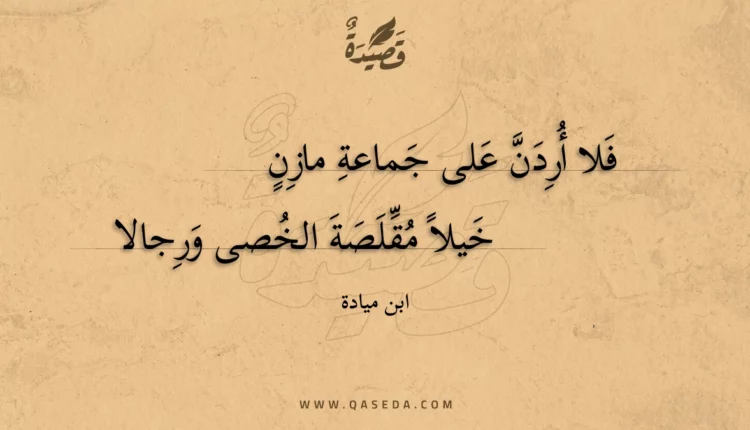 قَصِيدَةٌ
فَلا أُرِدَنَّ عَلى جَماعةِ مازِنٍ
خَيلاً مُقِّلَصَةَ الخُصى وَرِجالا
ابن ميادة
WWW.QASEDA.COM